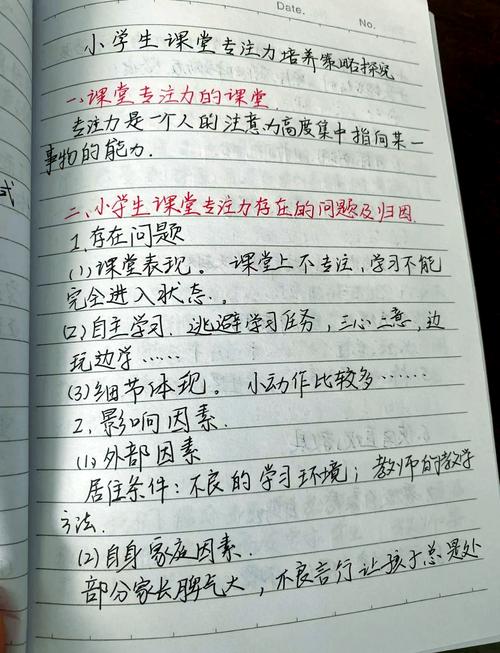 Date.
No.
小学生课堂专注力培养策略探究
一、课堂专注力的课堂
专注力是一个人的注意力高度集中指向某一
事物的能力.
二、小学生课堂专注力存在的问题及归因
1.存在问题
(1)课堂表现。课堂上不专注,学习不能
完全进入状态.。
(2)自主学习.逃避学习任务,三心二意,边
玩边学……
(3)细节体现。小动作比较多……
2.影响因素.
(1)外部因素
居住条件:不良的学习环境;教师的教学
方法.
(2)自身家庭因素.
部分家长脾气大,不良言行让孩子总是处